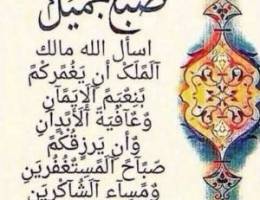 صباح جميل
اسأل الله مالك
الَمْلَكَ أن يَغْمُركُمْ
بِنعِيَمَ آلَإيَمَآنِ
وَعآفَيَةَ آلَإبْدآنِ
وَأن يَرزِقُكُمْ
صَبآحَ آلَمْسِتغْفُريَنِ
وَمْسِآءَ آلَشآكْريَنِ